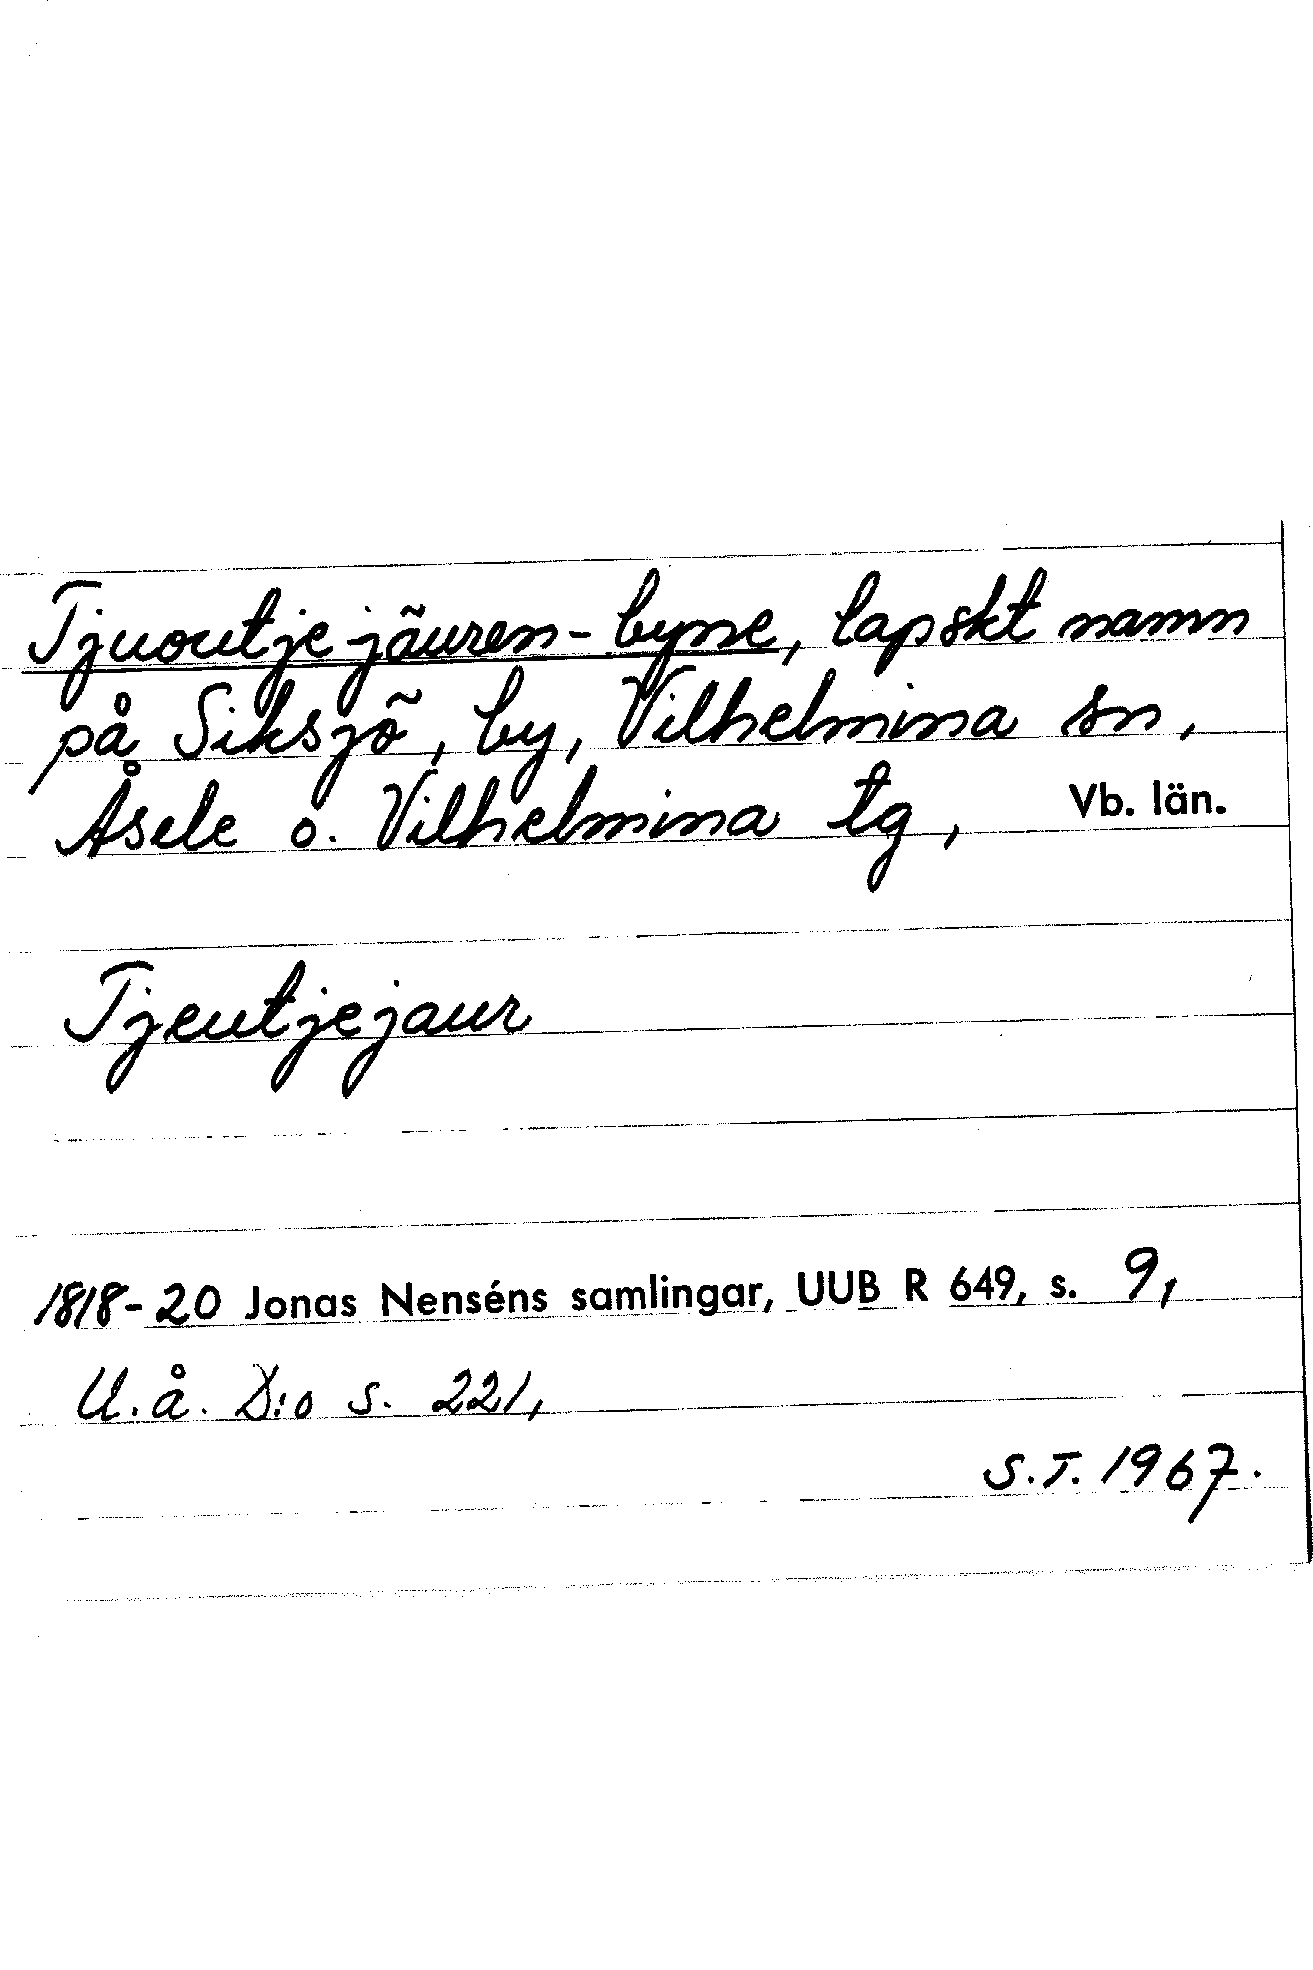 Tjuoutje jäuren-byne, lapskt namn
på Siksjö, by, Vilhelmina sn,
Åsele o. Vilhelmina tg, Vb. län.
Tjeutjejaur
1818-20 Jonas Nenséns samlingar, UUB R 649, s. 9,
U.å. D:o s. 221,
S.T. 1967.